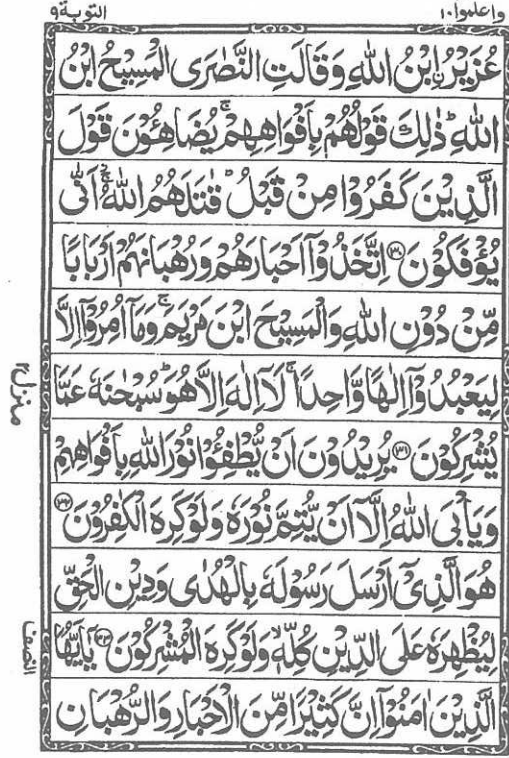 واعلموا ١٠
التوبة ٩
عُزَيْرُ ࣙابْنُ اللّٰهِ وَقَالَتِ النَّصٰرَى الْمَسِيْحُ ابْنُ
اللّٰهِ ؕ ذٰلِكَ قَوْلُهُمْ بِاَفْوَاهِهِمْ ۚ يُضَاهِـُٔوْنَ قَوْلَ
الَّذِيْنَ كَفَرُوْا مِنْ قَبْلُ ؕ قٰتَلَهُمُ اللّٰهُ ۚ اَنّٰى
يُؤْفَكُوْنَ ۝۳۰ اِتَّخَذُوْۤا اَحْبَارَهُمْ وَرُهْبَانَهُمْ اَرْبَابًا
مِّنْ دُوْنِ اللّٰهِ وَالْمَسِيْحَ ابْنَ مَرْيَمَ ۚ وَمَاۤ اُمِرُوْۤا اِلَّا
لِيَعْبُدُوْۤا اِلٰهًا وَّاحِدًا ۚ لَاۤ اِلٰهَ اِلَّا هُوَ ؕ سُبْحٰنَهٗ عَمَّا
يُشْرِكُوْنَ ۝۳۱ يُرِيْدُوْنَ اَنْ يُّطْفِـُٔوْا نُوْرَ اللّٰهِ بِاَفْوَاهِهِمْ
وَيَاْبَى اللّٰهُ اِلَّاۤ اَنْ يُّتِمَّ نُوْرَهٗ وَلَوْ كَرِهَ الْكٰفِرُوْنَ ۝۳۲
هُوَ الَّذِيْۤ اَرْسَلَ رَسُوْلَهٗ بِالْهُدٰى وَدِيْنِ الْحَقِّ
لِيُظْهِرَهٗ عَلَى الدِّيْنِ كُلِّهٖ ۙ وَلَوْ كَرِهَ الْمُشْرِكُوْنَ ۝۳۳ يٰۤاَيُّهَا
الَّذِيْنَ اٰمَنُوْۤا اِنَّ كَثِيْرًا مِّنَ الْاَحْبَارِ وَالرُّهْبَانِ
منزل ۲
النصف